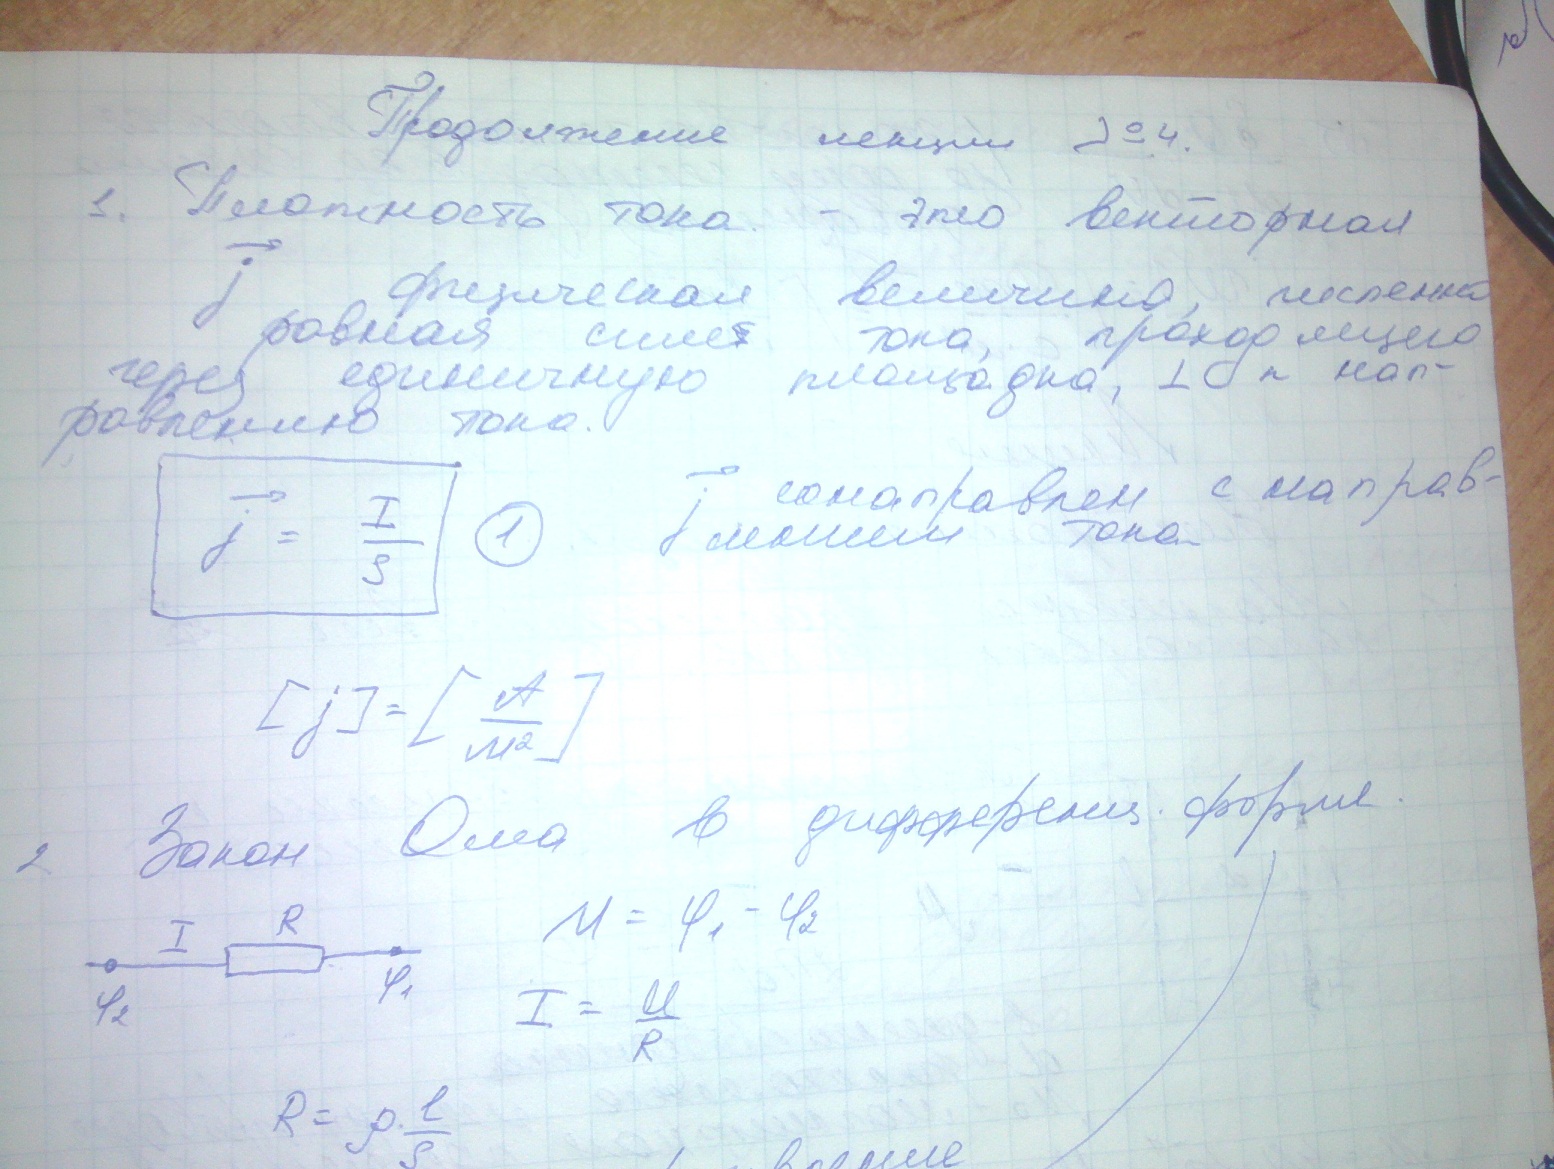 Продолжение лекции №4.
1. Плотность тока - это векторная
j⃗ физическая величина, численно
равная силе тока, проходящего
через единичную площадка, ⊥ к нап-
равлению тока.
j⃗ = I/S (1) j⃗ сонаправлен с направ-
лением тока
[j] = [А/м²]
2 Закон Ома в дифференц. форме.
I R
φ₂ φ₁
U = φ₁ - φ₂
I = U/R
R = ρ·l/S